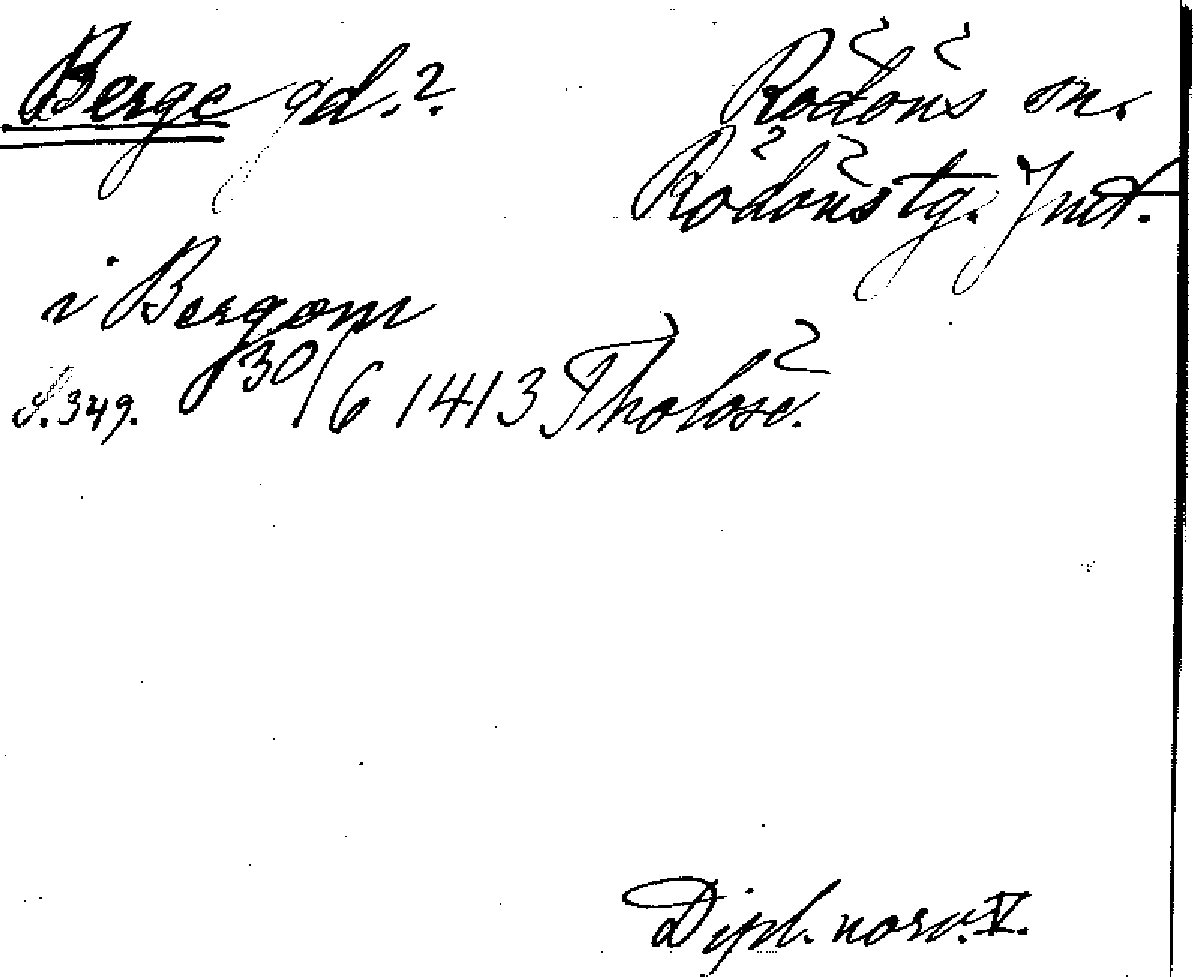 Berge gd.?
Rödöns sn.
Rödöns tg. Jmt.
i Bergom
S. 349. 30/6 1413 Tholose.
Dipl. norv. V.